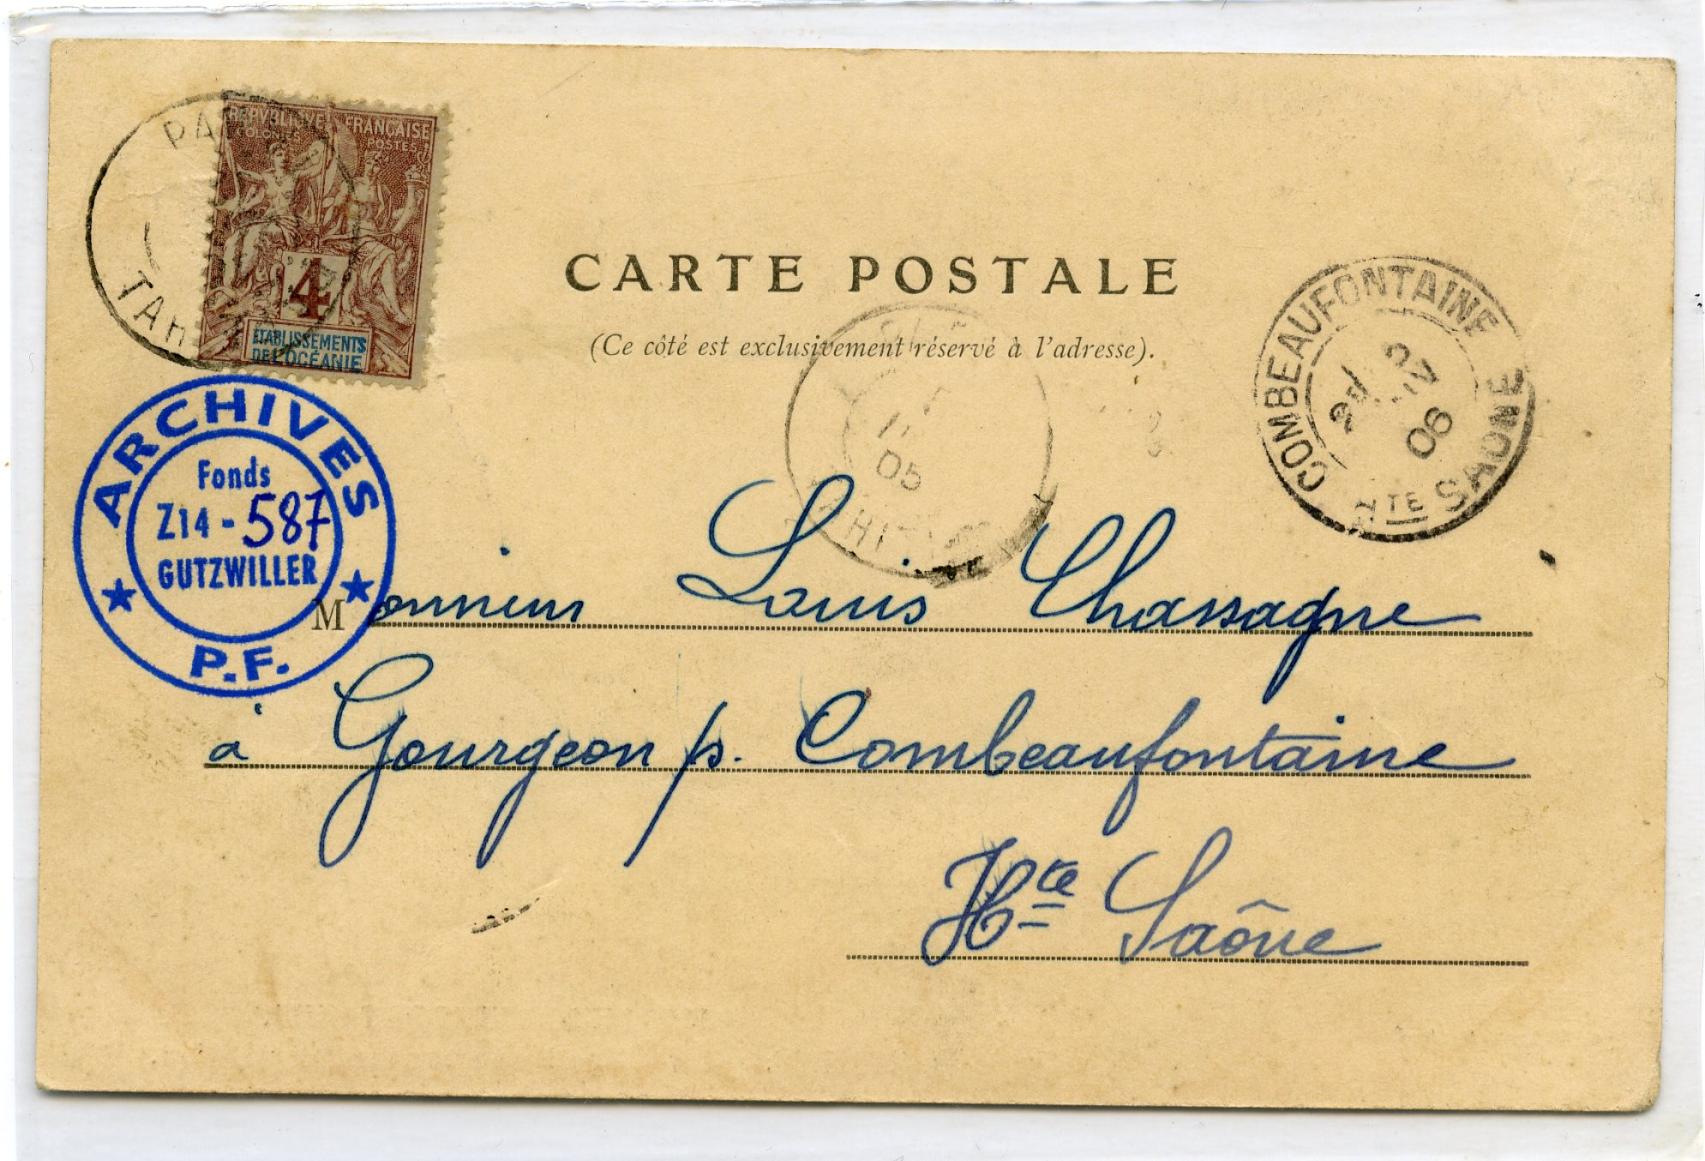 RÉPUBLIQUE FRANÇAISE
COLONIES POSTES
4
ETABLISSEMENTS
DE L'OCÉANIE
CARTE POSTALE
(Ce côté est exclusivement réservé à l'adresse).
COMBEAUFONTAINE
06
HTE SAONE
05
ARCHIVES
Fonds
Z14 - 587
GUTZWILLER
P.F.
Monsieur Louis Chassagne
à Gourgeon p. Combeaufontaine
Hte Saône